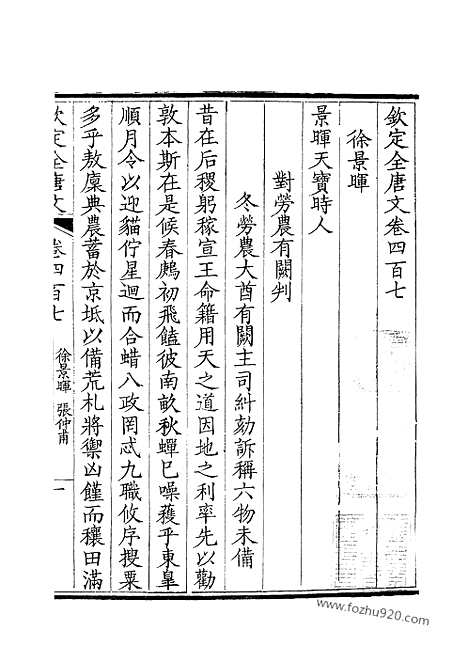 欽定全唐文卷四百七
徐景暉
景暉天寶時人
對勞農有闕判
冬勞農大酋有闕主司糾劾訴稱六物未備
昔在后稷躬稼宣王命籍用天之道因地之利率先以勸
敦本斯在是候春鷓初飛饁彼南畝秋蟬已噪穫乎東臯
順月令以迎貓佇星迴而合蜡八政罔忒九職攸序搜粟
多乎敖廩典農蓄於京坻以備荒札將禦凶饉而穰田滿
欽定全唐文 卷四百七 徐景暉 張仲甫 一
www.fozhu920.com